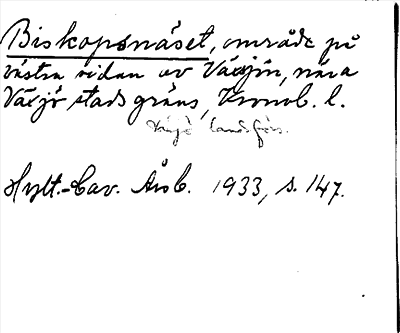 Biskopsnäset, område på
västra sidan av Växjön, nära
Växjö stads gräns, Kronob. l.
Växjö landsförs.
Hylt.-Cav. Årsb. 1933, s. 147.